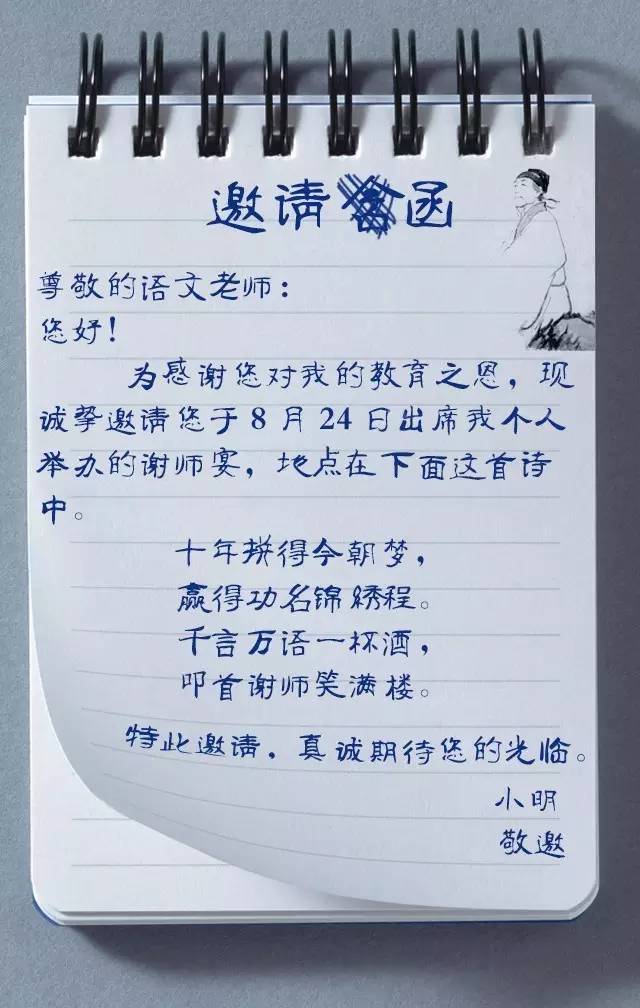 邀请函
尊敬的语文老师：
您好！
为感谢您对我的教育之恩，现
诚挚邀请您于 8 月 24 日出席我个人
举办的谢师宴，地点在下面这首诗
中。
十年拼得今朝梦，
赢得功名锦绣程。
千言万语一杯酒，
叩首谢师笑满楼。
特此邀请，真诚期待您的光临。
小明
敬邀